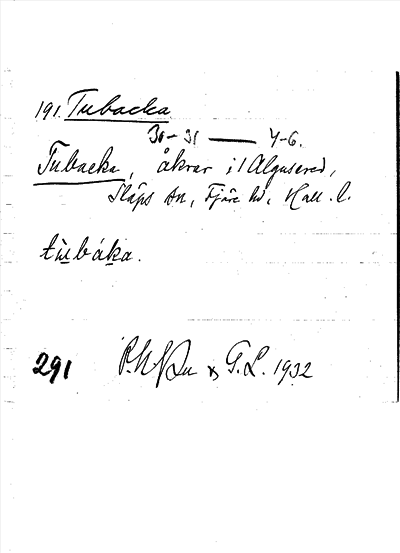 191. Tubacka
30-31 — Y-6.
Tubacka, åkrar i Algusered,
Släps sn, Fjäre hd, Hall. l.
tùbáka.
291 G.L. 1932